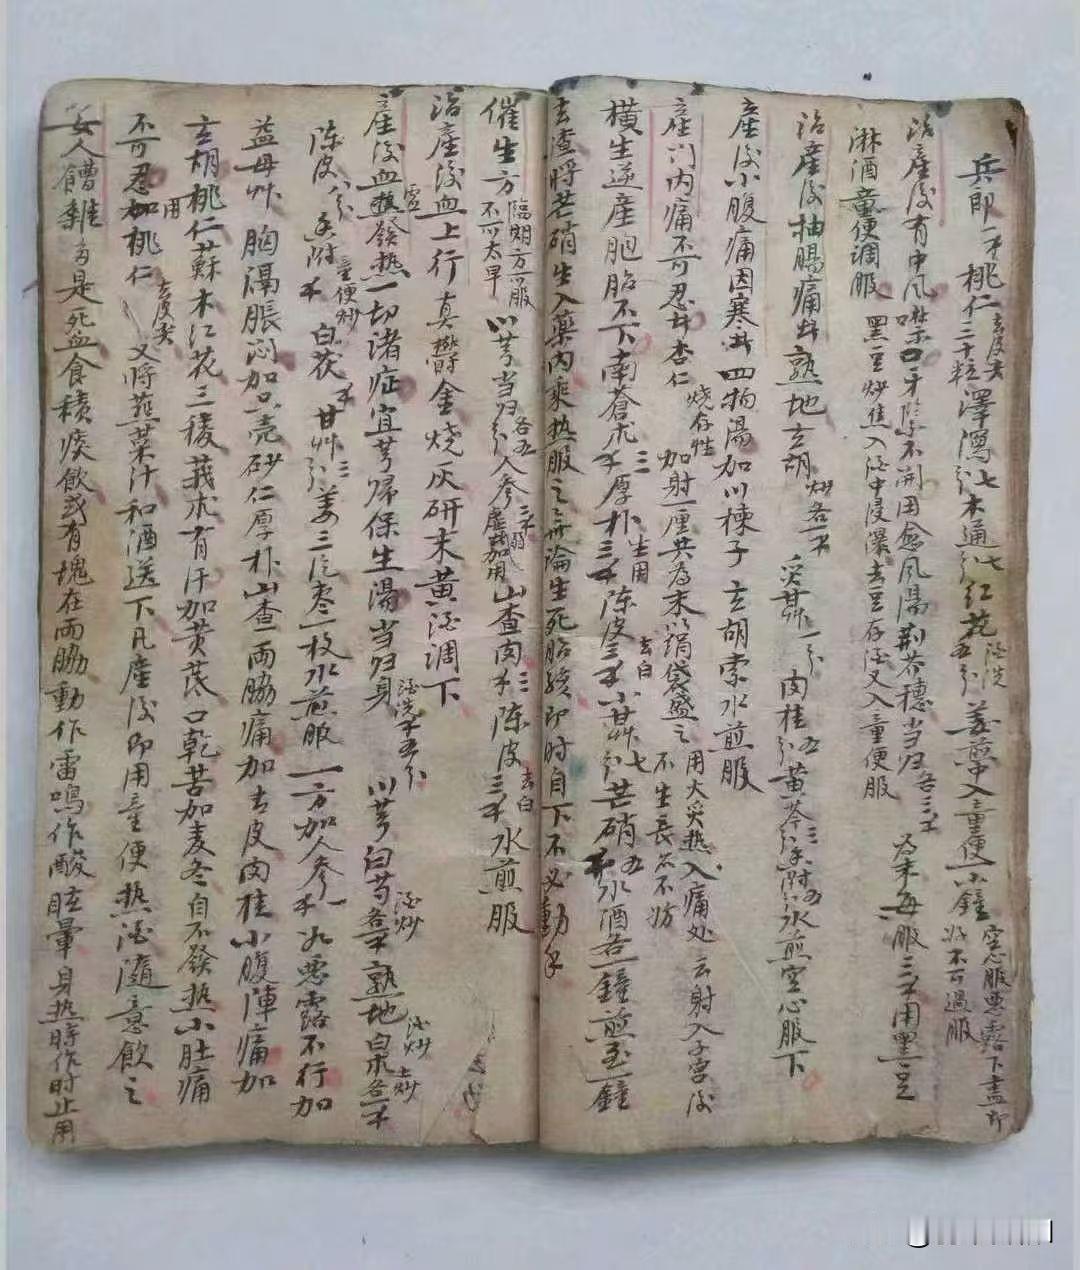 兵郎一不桃仁去皮尖三十粒澤瀉七分木通七分红花酒洗五分姜煎入童便一小鐘空心服惡露下盡即止不可過服
治產後有中風噤口牙不開用愈风湯荆芥穗当归各三不为末每服三不用黑豆
淋酒童便调服 黑豆炒焦入酒中浸瀑去豆存酒又入童便服
治產後抽腸痛 熟地玄胡炒各一不 炙草一分肉桂五分黄芩水煎空心服下
產後小腹痛因寒 四物湯加川楝子玄胡索水煎服
產门内痛不可忍 杏仁烧存性加射一厘共为末以绢袋盛之用火炙热入痛处 云射入子宫後不生長 不妨
横生逆產胞胎不下南蒼术三不厚朴生用三不陈皮去白三不小草七分芒硝五不水酒各一鐘煎至一鐘
去渣將芒硝生入藥内乘热服之毋論生死胎孩即时自下不必動手
催生方臨期方可服不可太早 川芎当归各五分人参虚弱加用山查肉三不陈皮去白三不水煎服
治產後血上行真鬱金烧灰研末黄酒调下
產後血虚發热一切诸症宜芎歸保生湯当归身酒洗不五分川芎白芍酒炒各不熟地白术土炒各一不
陈皮八分香附童便炒不白茯不甘艸三分姜三片枣一枚水煎服一方加人参一不如惡露不行加
益母艸胸隔脹闷加只壳砂仁厚朴山查两脇痛加去皮肉桂小腹陣痛加
玄胡桃仁蘇木红花三稜莪术有汗加黄芪口乾苦加麦冬自不發热小肚痛
不可忍加用桃仁去皮尖又將韮菜汁和酒送下凡產後即用童便热酒隨意飲之
女人嘈雜多是死血食積痰飲或有塊在两脇動作雷鳴作酸眩暈身热时作时止用